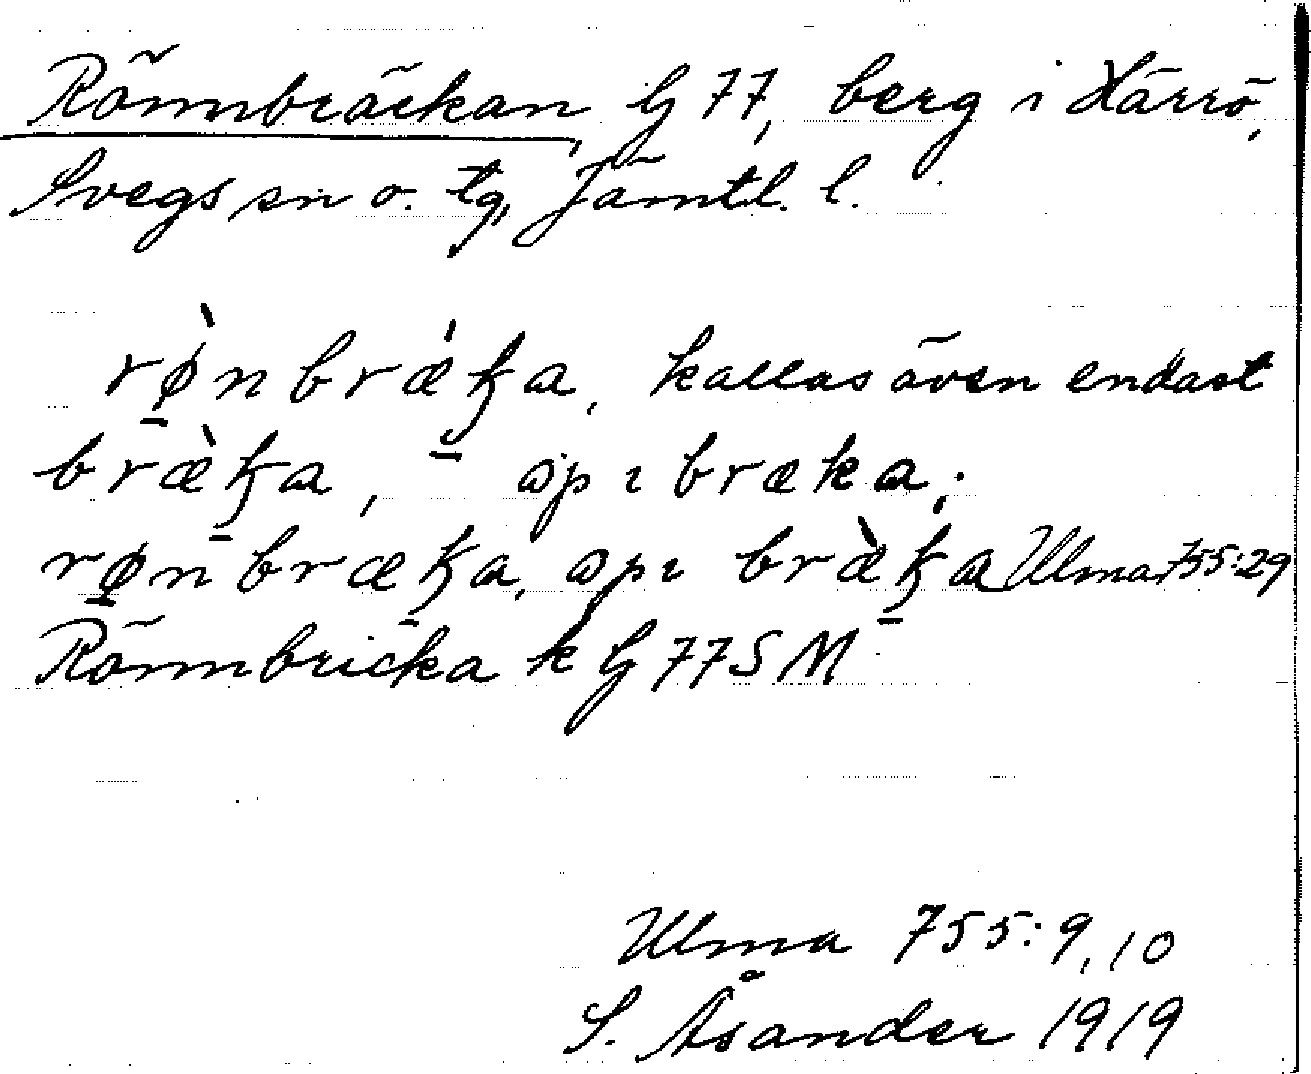 Rönnbräckan, G 77, berg i Härrö,
Svegs sn o. tg, Jämtl. l.
rø̀nbrǽꞣa, kallas även endast
bræ̀ꞣa, – ɷpɩ bræka;
rønbræꞣa, ɷpɩ bræ̀ꞣa Ulma 755:29
Rönnbricka k G 77 S M
Ulma 755: 9, 10
S. Åsander 1919